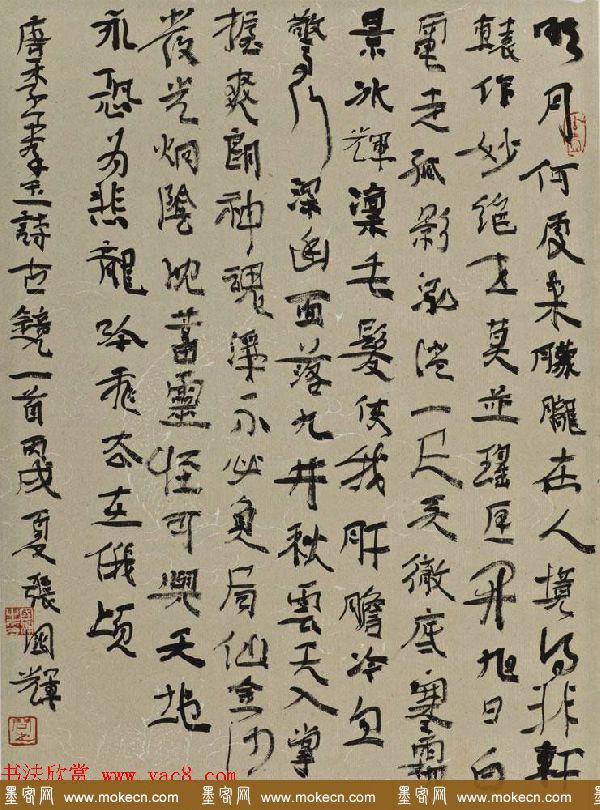 明月何處來朦朧在人境得非軒
轅作妙絕世莫並瑤匣開旭日白
電走孤影泓澄一尺天徹底寒霜
景冰輝凜毛髮使我肝膽冷忽
驚行深幽面落九井秋雲天入掌
握爽朗神魂淨不必負局仙金沙
發光炯陰沈蓄靈怪可與天地
永恐為悲龍吟飛去在俄頃
唐李羣玉詩古鏡一首丙戌夏張國輝
书法欣赏 www.yac8.com
墨客网 www.mokecn.com 墨客网 www.mokecn.com 墨客网 www.mokecn.com